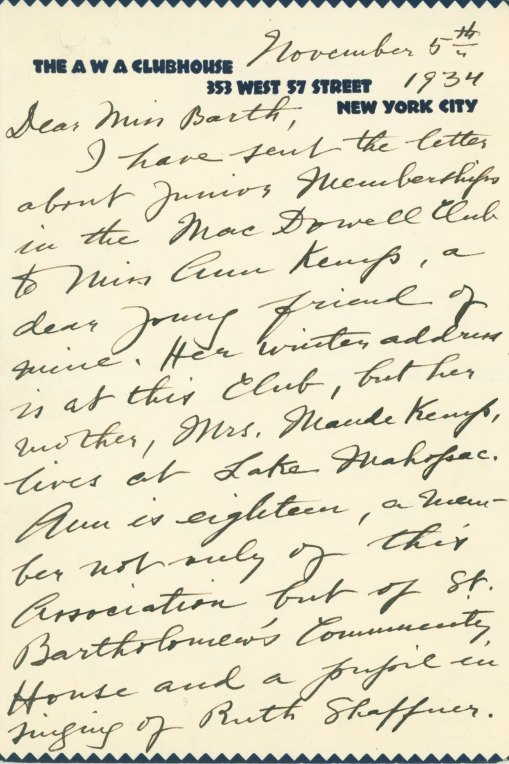 November 5th
THE A W A CLUBHOUSE
353 WEST 57 STREET 1934
NEW YORK CITY
Dear Miss Barth,
I have sent the letter
about Junior Memberships
in the MacDowell Club
to Miss Ann Kemp, a
dear young friend of
mine. Her winter address
is at this Club, but her
mother, Mrs. Maude Kemp,
lives at Lake Mahopac.
Ann is eighteen, a mem-
ber not only of this
Association but of St.
Bartholomew's Community
House and a pupil in
singing of Ruth Shaffner.